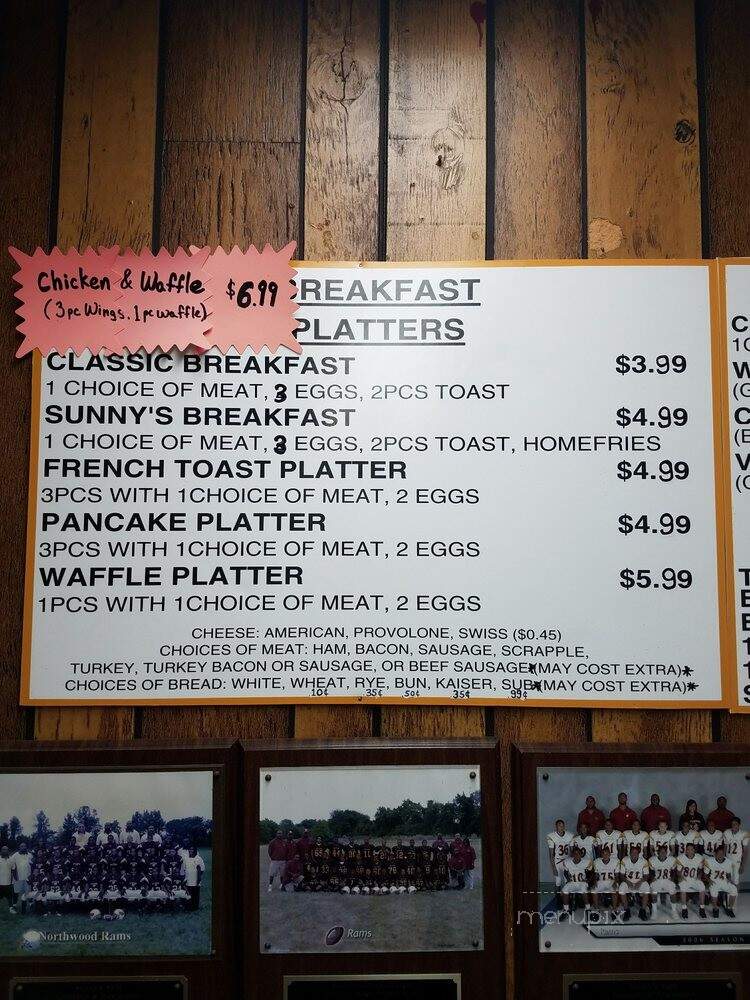 Chicken & Waffle $6.99
(3pc Wings. 1pc waffle)
BREAKFAST
PLATTERS
CLASSIC BREAKFAST $3.99
1 CHOICE OF MEAT, 3 EGGS, 2PCS TOAST
SUNNY'S BREAKFAST $4.99
1 CHOICE OF MEAT, 3 EGGS, 2PCS TOAST, HOMEFRIES
FRENCH TOAST PLATTER $4.99
3PCS WITH 1CHOICE OF MEAT, 2 EGGS
PANCAKE PLATTER $4.99
3PCS WITH 1CHOICE OF MEAT, 2 EGGS
WAFFLE PLATTER $5.99
1PCS WITH 1CHOICE OF MEAT, 2 EGGS
CHEESE: AMERICAN, PROVOLONE, SWISS ($0.45)
CHOICES OF MEAT: HAM, BACON, SAUSAGE, SCRAPPLE,
TURKEY, TURKEY BACON OR SAUSAGE, OR BEEF SAUSAGE*(MAY COST EXTRA)*
CHOICES OF BREAD: WHITE, WHEAT, RYE, BUN, KAISER, SUB*(MAY COST EXTRA)*
.10¢ .35¢ .50¢ .35¢ .99¢
Northwood Rams
Rams
2006 SEASON
menupix